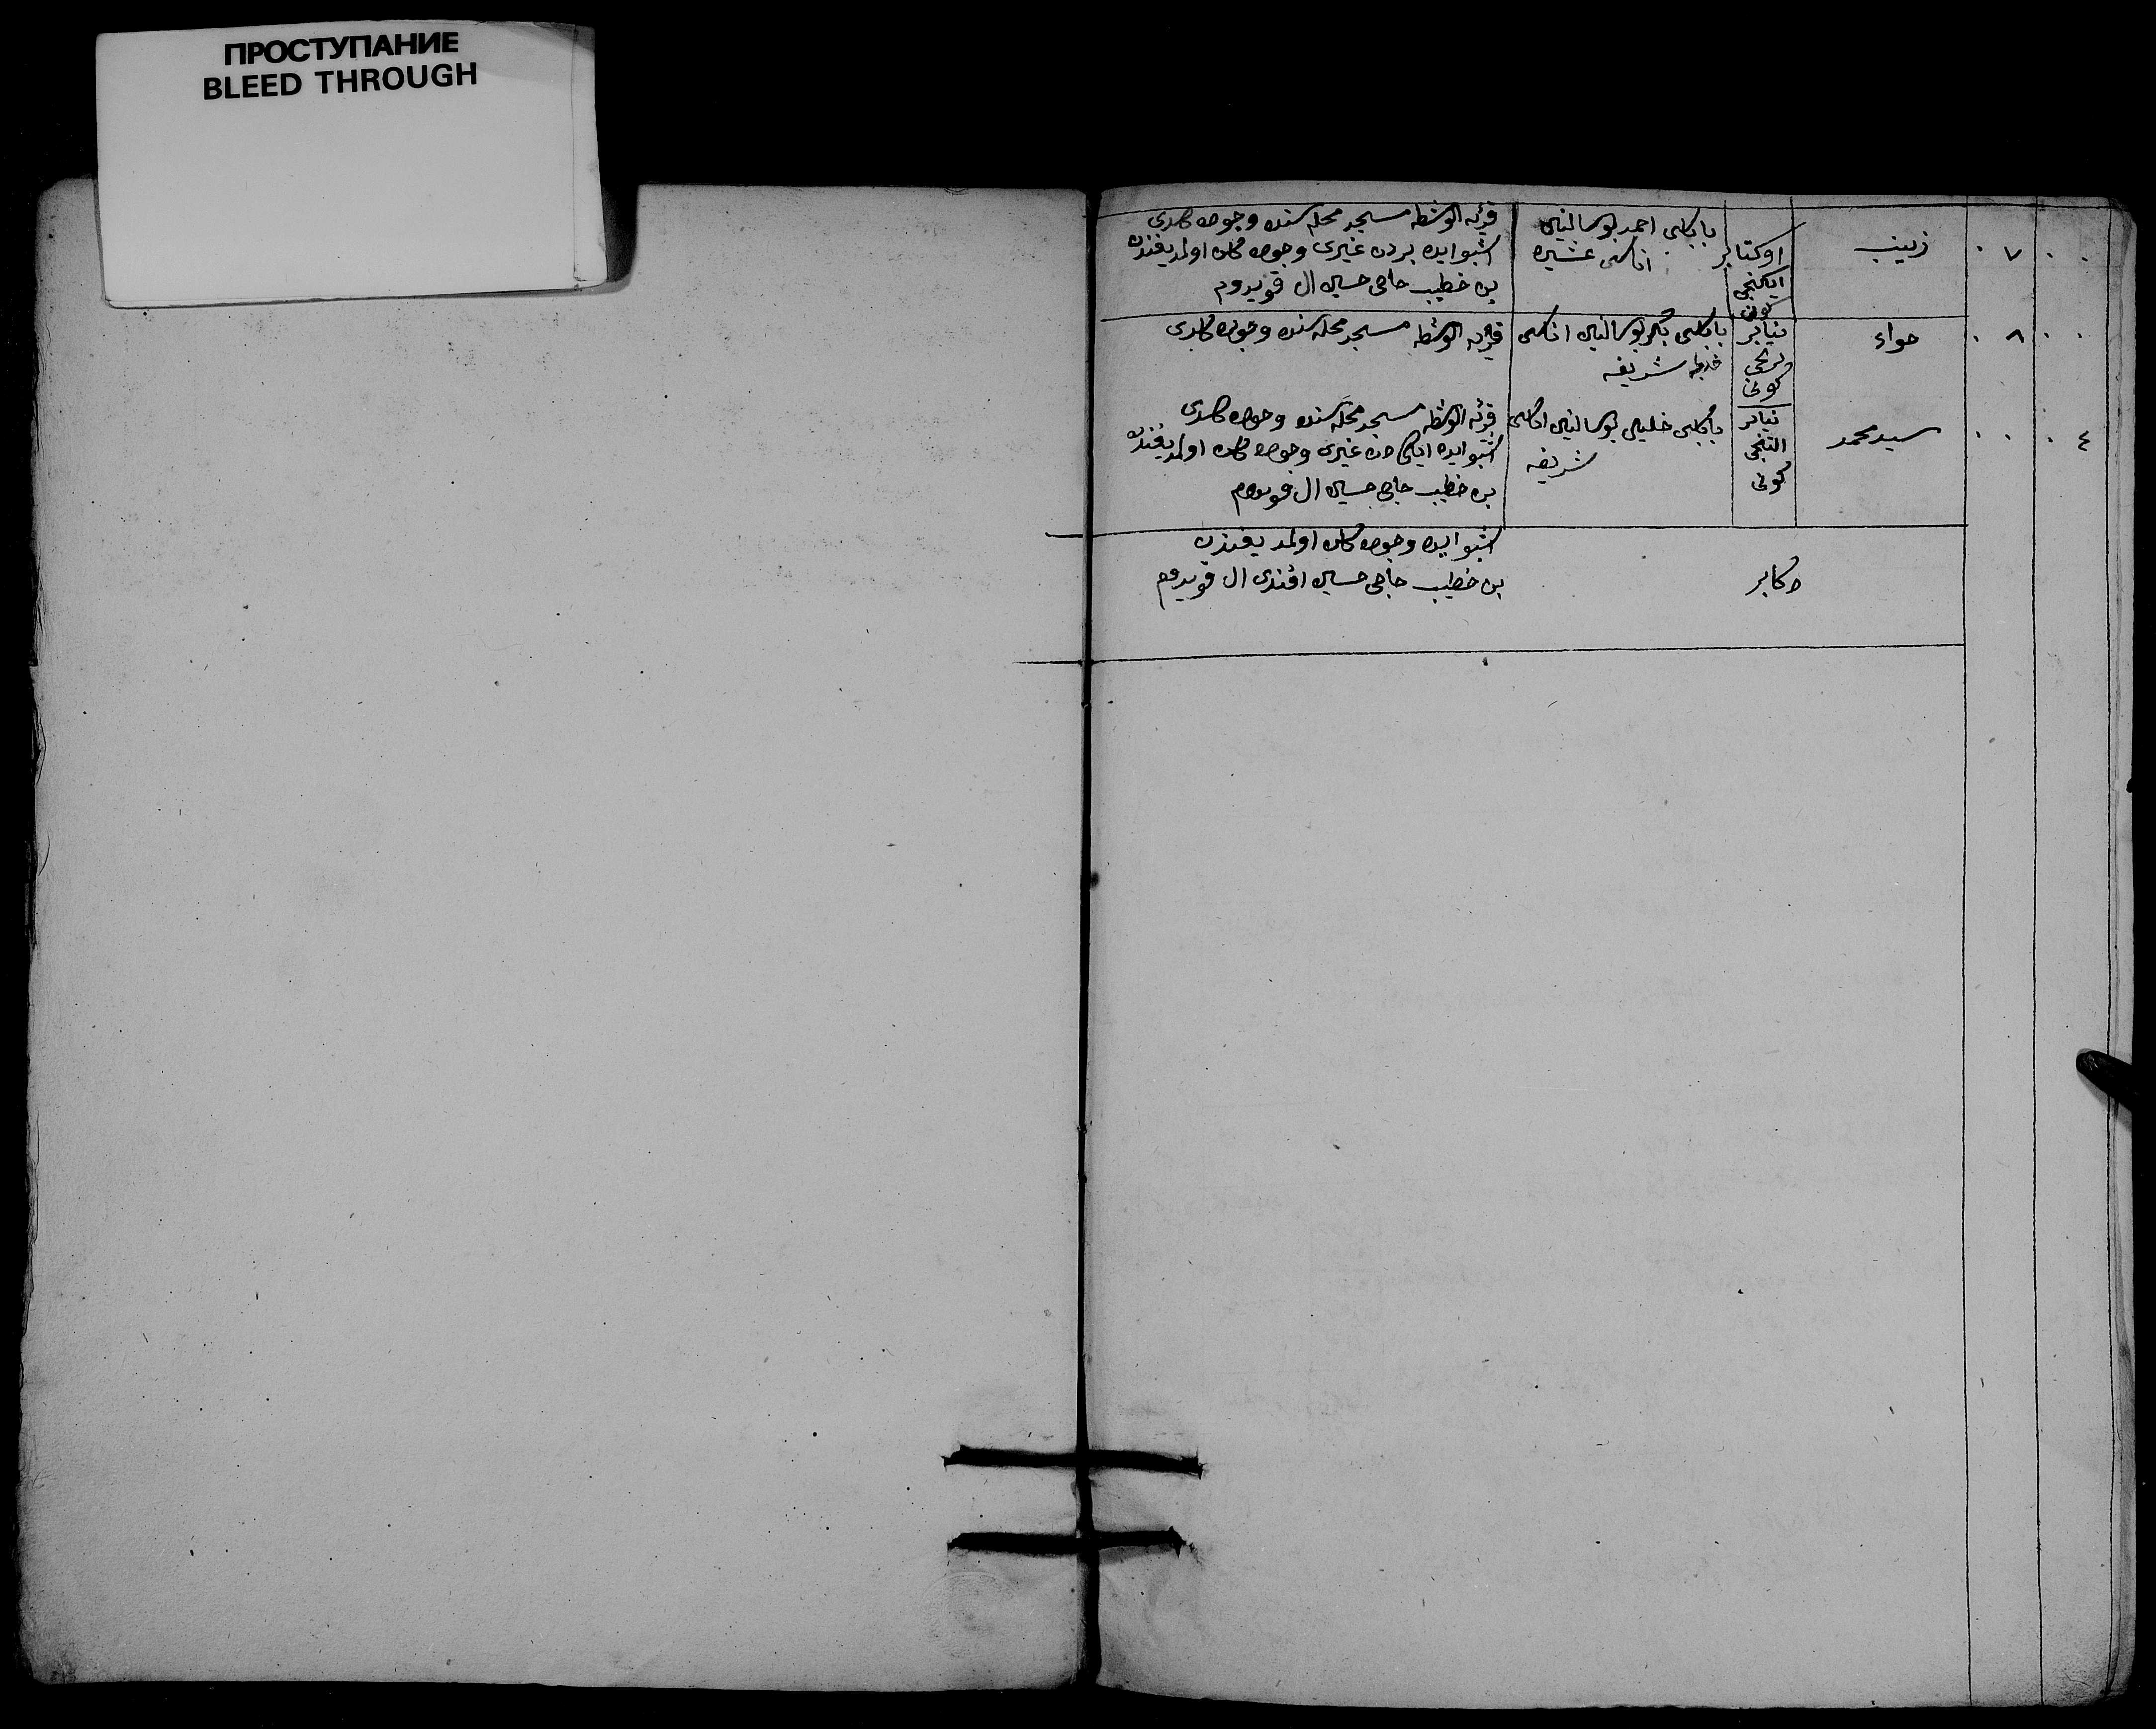 ПРОСТУПАНИЕ
BLEED THROUGH
٧
زينب
اوكتابر
ايكنجى
كونى
باباسى احمد
اناسى عشيره
مسجد محله سنده وجوده كلدى
اشبو ايده بردن غيرى وجوده كلن اولمديغندن
بن خطيب حاجى حسين ال قويدوم
٨
حواء
نيابر
كونى
باباسى اناسى
شريفه
مسجد محله سنده وجوده كلدى
٤
سيد محمد
نيابر
التنجى
كونى
باباسى خليل اناسى
شريفه
مسجد محله سنده وجوده كلدى
اشبو ايده ايكى دن غيرى وجوده كلن اولمديغندن
بن خطيب حاجى حسين ال قويدوم
دكابر
اشبو ايده وجوده كلن اولمديغندن
بن خطيب حاجى حسين افندى ال قويدوم